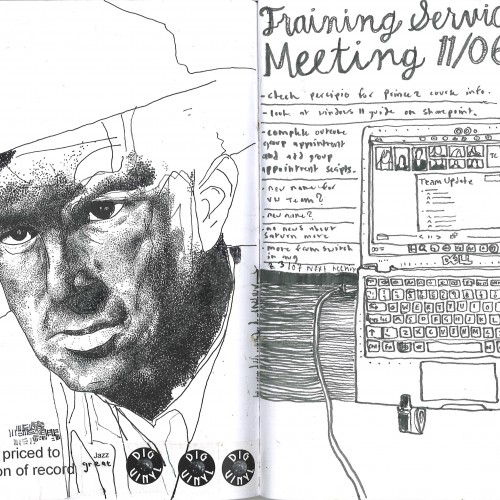 priced to
on of record
Jazz
great
DIG
VINYL
DIG
VINYL
DIG
VINYL
Training Servic
Meeting 11/06
- check percipio for Prince 2 course info.
- look at windows 11 guide on sharepoint.
- complete outcome
group appointment
and add group
appointment scripts.
- new name for
VW Team?
- new name?
- no news about
Saturn more
- more from switch
in aug
Team Update
DELL